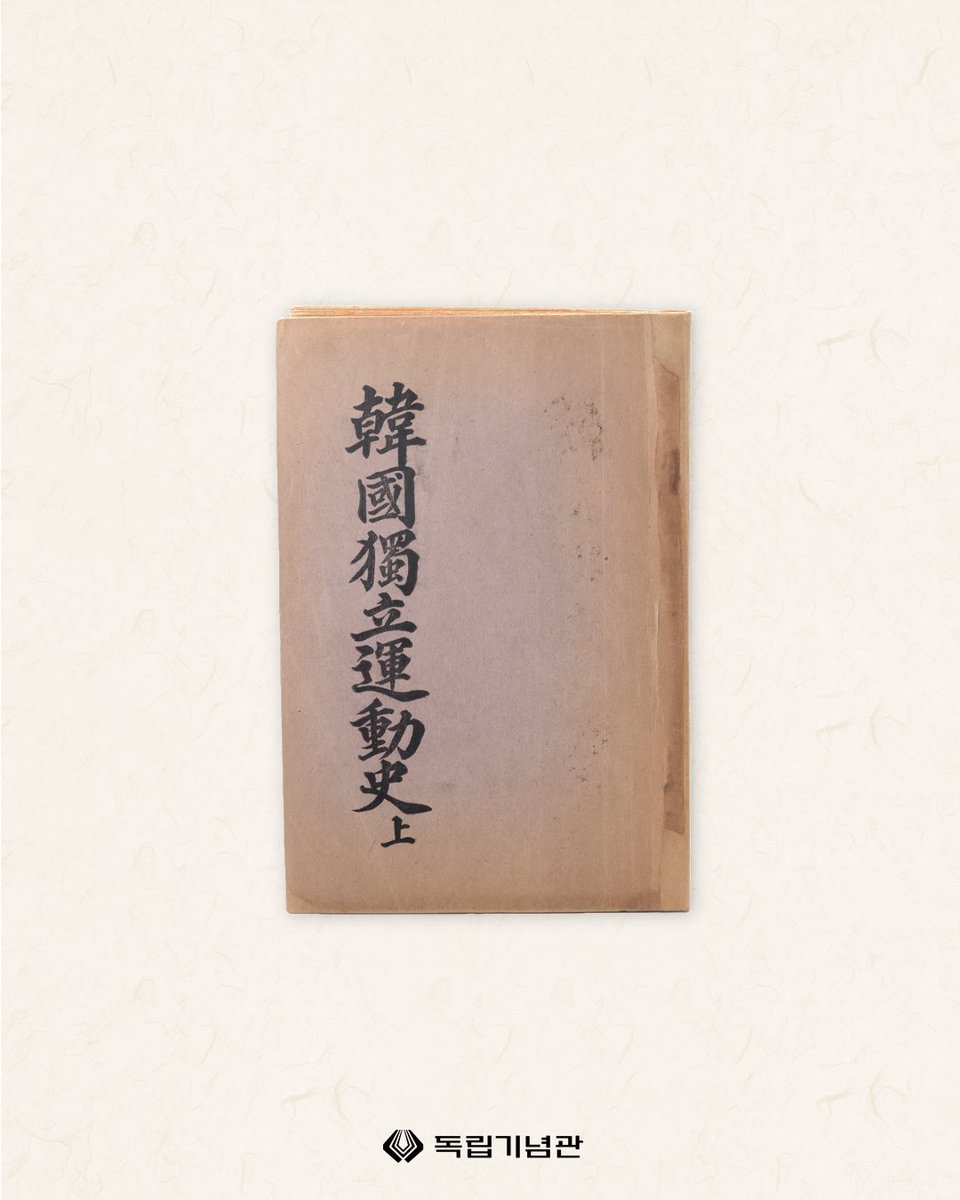 韓國獨立運動史 上
독립기념관